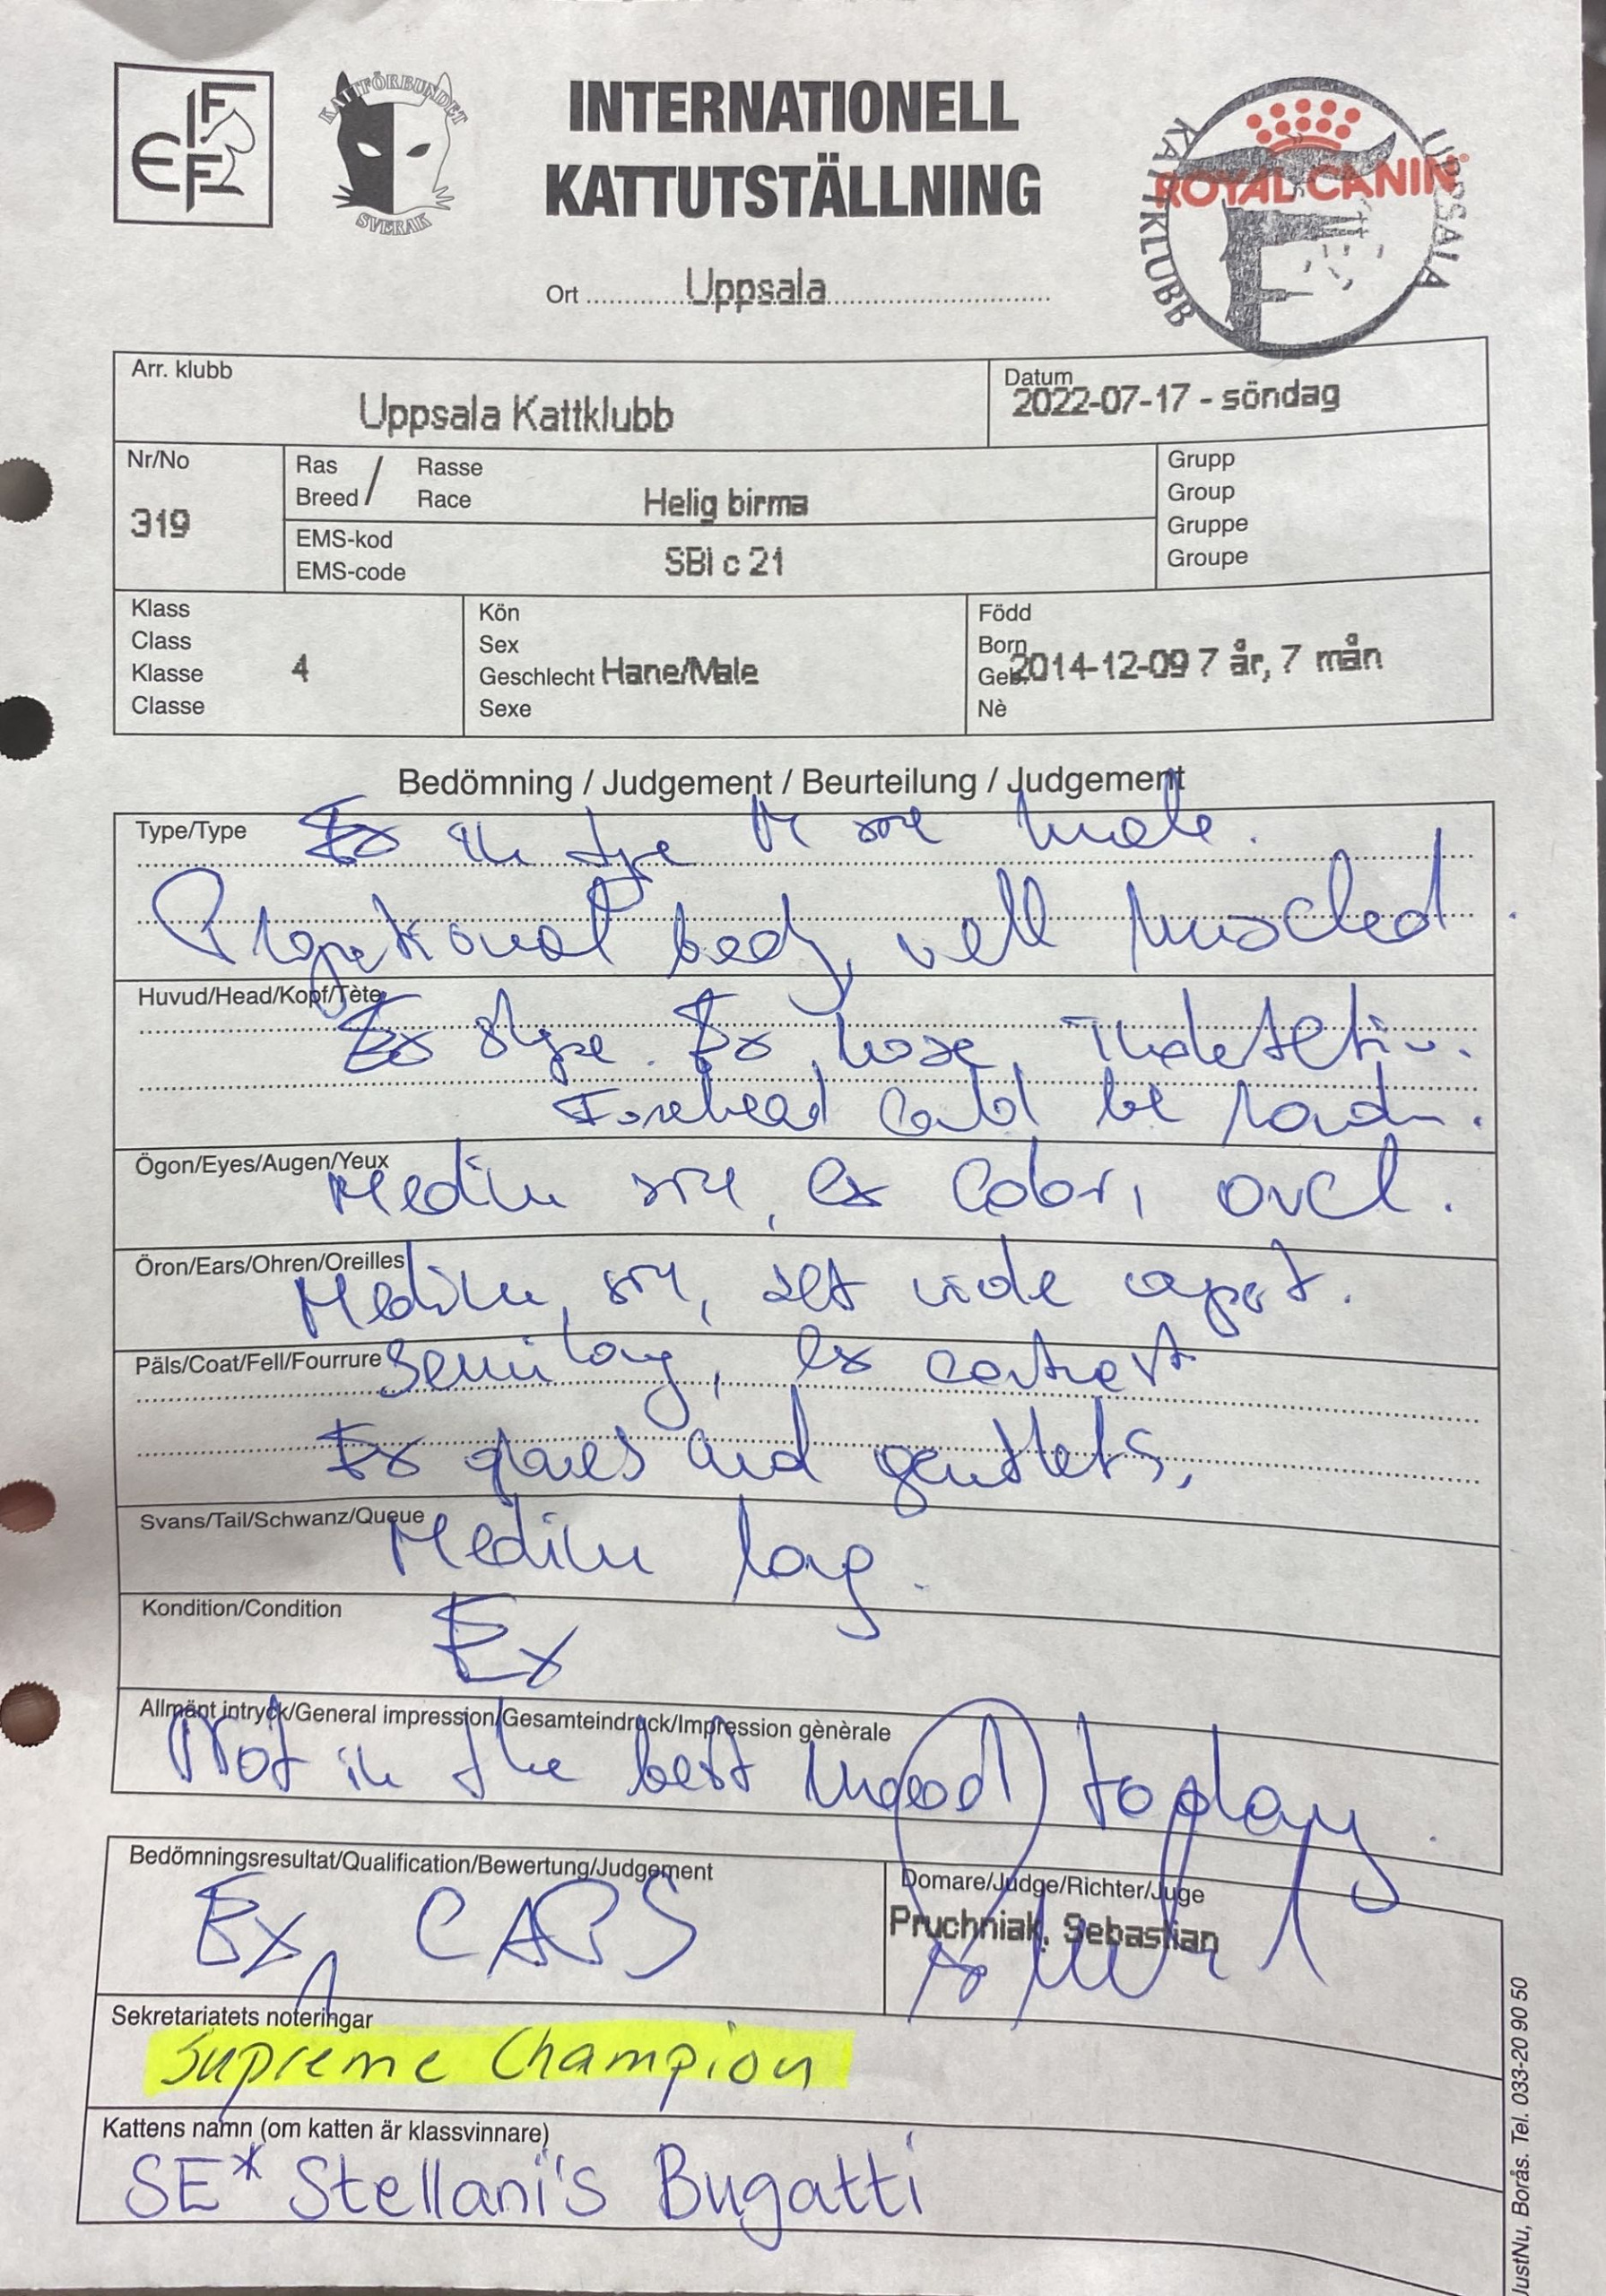 FIFe
KATTFÖRBUNDET
SVERAK
INTERNATIONELL
KATTUTSTÄLLNING
ROYAL CANIN
KATTKLUBB
UPPSALA
Ort Uppsala
Arr. klubb
Uppsala Kattklubb
Datum
2022-07-17 - söndag
Nr/No
319
Ras / Rasse
Breed / Race
Helig birma
EMS-kod
EMS-code
SBI c 21
Grupp
Group
Gruppe
Groupe
Klass
Class
Klasse
Classe
4
Kön
Sex
Geschlecht Hane/Male
Sexe
Född
Born
Geb. 2014-12-09 7 år, 7 mån
Nè
Bedömning / Judgement / Beurteilung / Judgement
Type/Type
Ex in type M size male.
Proportional body, well muscled
Huvud/Head/Kopf/Tète
Ex shape. Ex nose
Forehead could be
Ögon/Eyes/Augen/Yeux
Medium size, ex color, oval.
Öron/Ears/Ohren/Oreilles
Medium size, set wide apart.
Päls/Coat/Fell/Fourrure
Semi long, ex contrast
Ex gloves and gauntlets,
Svans/Tail/Schwanz/Queue
Medium long.
Kondition/Condition
Ex
Allmänt intryck/General impression/Gesamteindruck/Impression gènèrale
Not in the best mood today.
Bedömningsresultat/Qualification/Bewertung/Judgement
Ex 1 CAPS
Domare/Judge/Richter/Juge
Pruchniak, Sebastian
Sekretariatets noteringar
Supreme Champion
Kattens namn (om katten är klassvinnare)
SE* Stellani's Bugatti
JustNu, Borås. Tel. 033-20 90 50